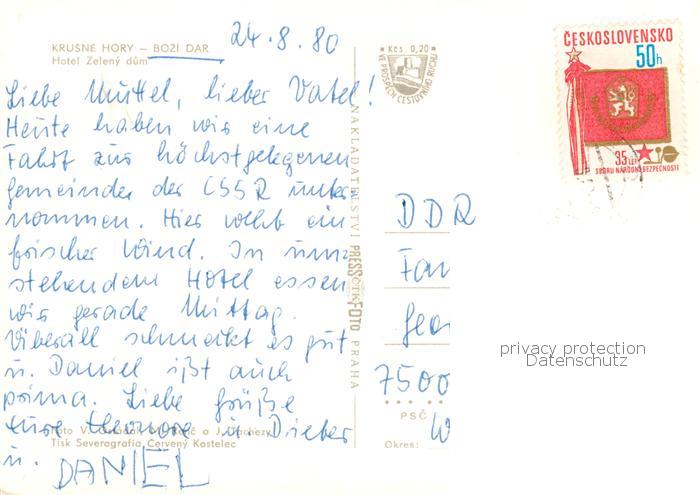 KRUŠNÉ HORY – BOŽÍ DAR
Hotel Zelený dům
24.8.80
Liebe Muttel, lieber Vatel!
Heute haben wir eine
Fahrt zur höchstgelegenen
Gemeinde der CSSR unter-
nommen. Hier weht ein
frischer Wind. In um-
stehendem Hotel essen
wir gerade Mittag.
Überall schmeckt es gut
u. Daniel ißt auch
prima. Liebe Grüße
Eure Eleonore u. Dieter
u. DANIEL
Foto V.
Tisk Severografia Červený Kostelec
Kčs 0,20
VE PROSPĚCH CESTOVNÍHO RUCHU
NAKLADATELSTVÍ PRESSFOTO PRAHA
ČTK
ČESKOSLOVENSKO
50h
35 let
SBORU NÁRODNÍ BEZPEČNOSTI
DDR
Fam
Geor
7500
PSČ
W
Okres:
privacy protection
Datenschutz